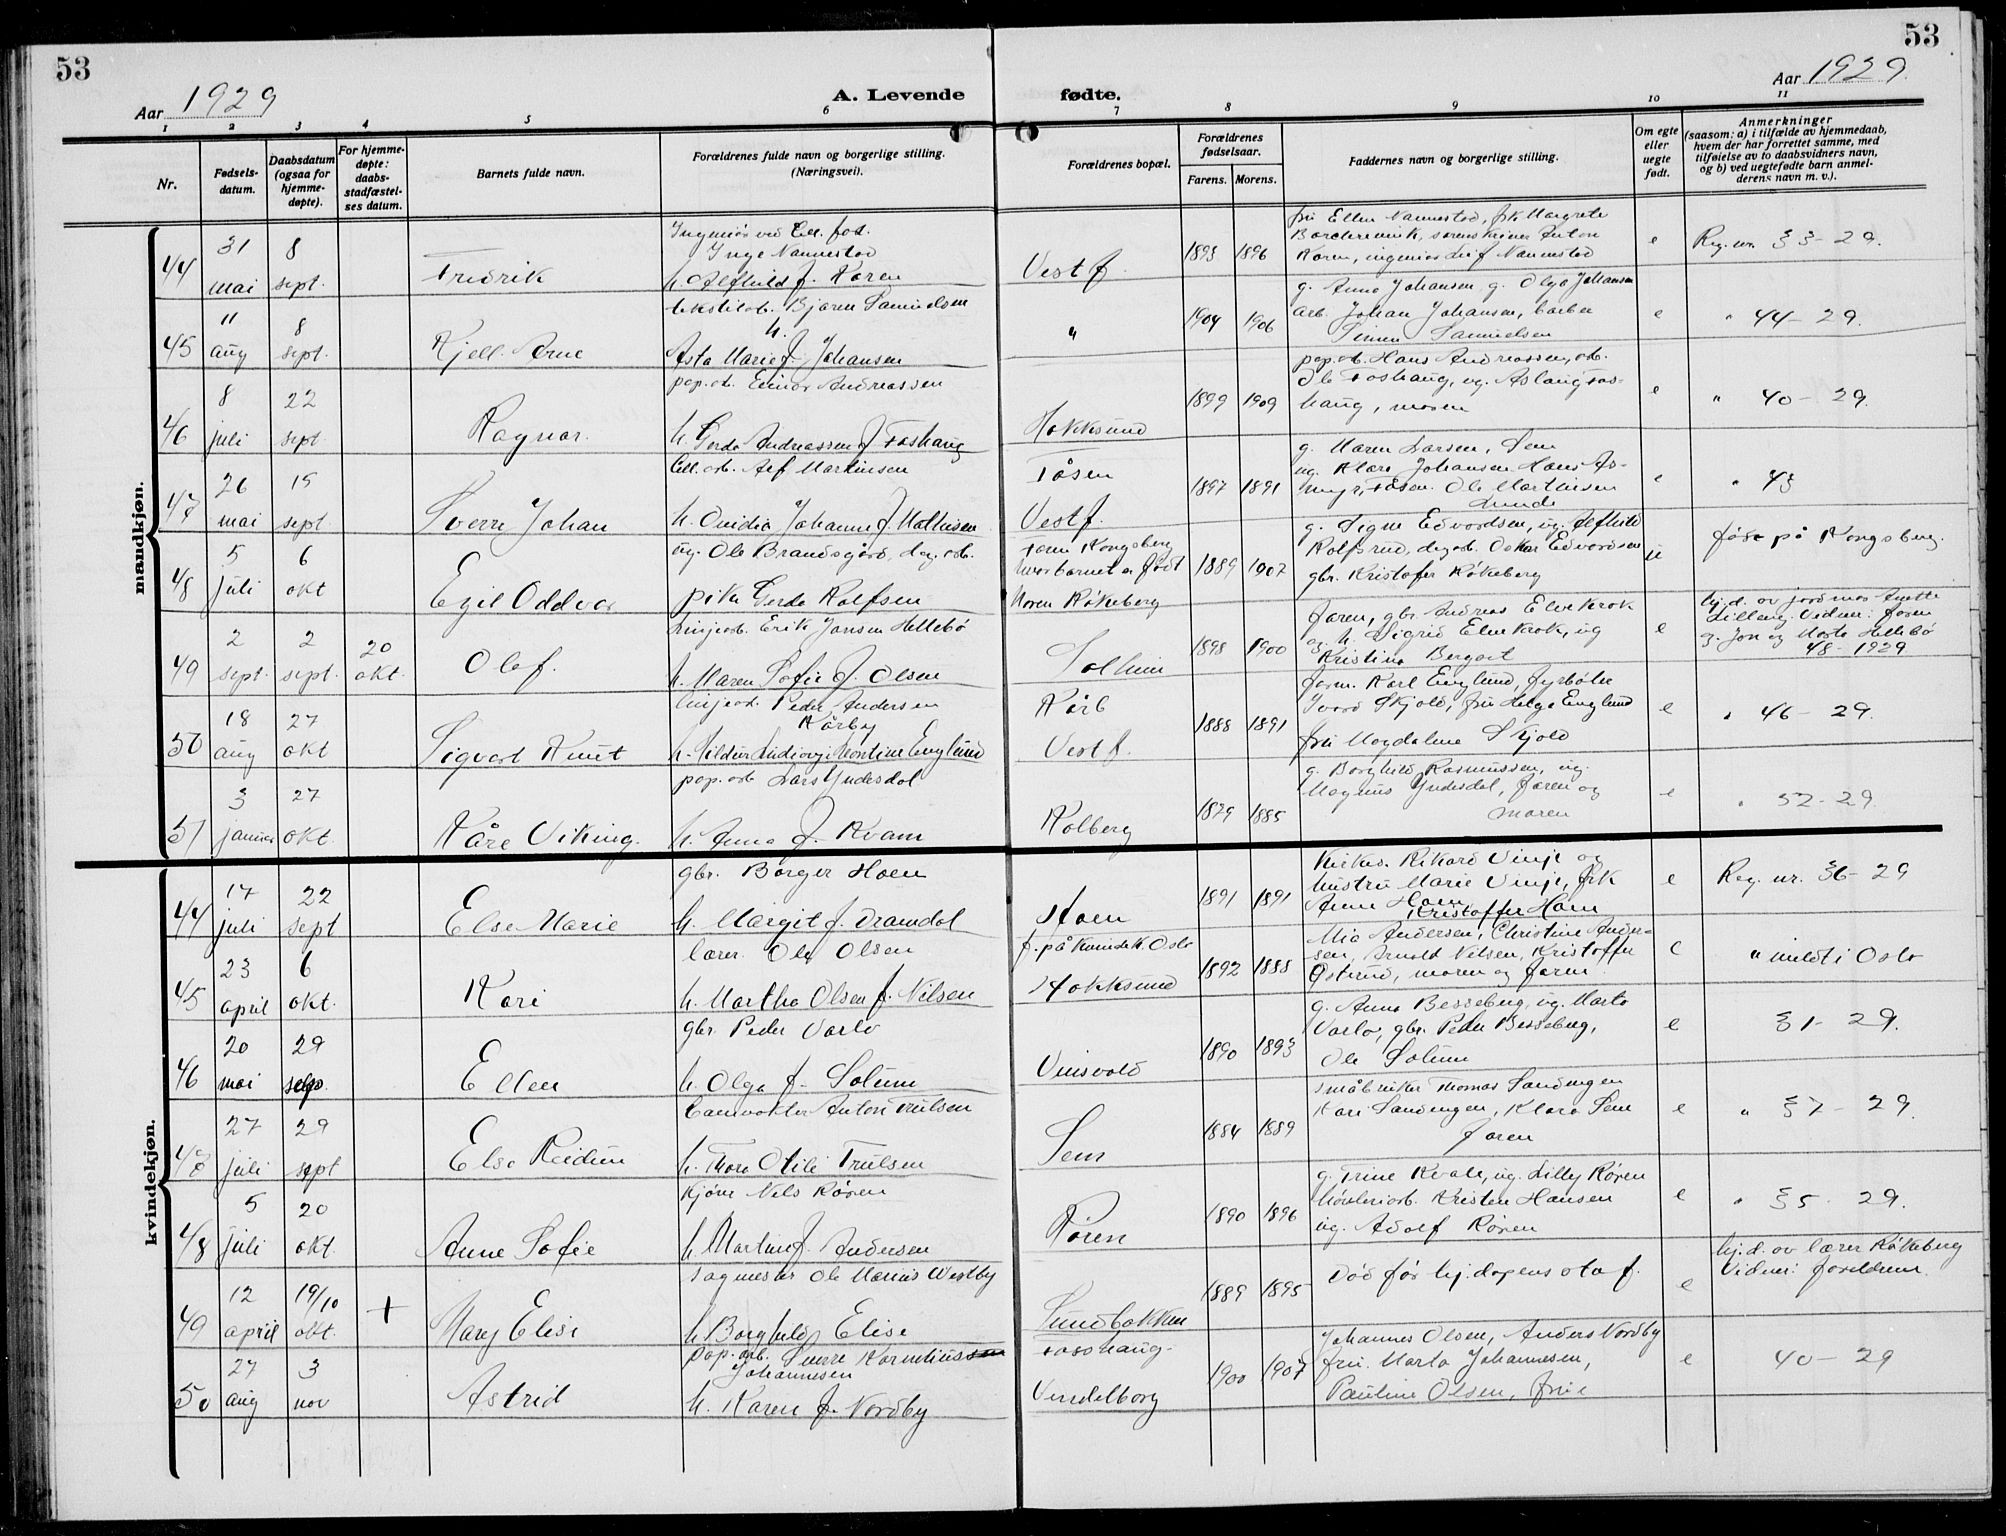 53
53
Aar 1929
A. Levende fødte.
Aar 1929.
1 2 3 4 5 6 7 8 9 10 11
Nr.
Fødsels-
datum.
Daabsdatum
(ogsaa for
hjemme-
døpte).
For hjemme-
døpte:
daabs-
stadfæstel-
ses datum.
Barnets fulde navn.
Forældrenes fulde navn og borgerlige stilling.
(Næringsvei).
Forældrenes bopæl.
Forældrenes
fødselsaar.
Farens. Morens.
Faddernes navn og borgerlige stilling.
Om egte
eller
uegte
født.
Anmerkninger
(saasom: a) i tilfælde av hjemmedaab,
hvem der har forrettet samme, med
tilføielse av to daabsvidners navn,
og b) ved uegtefødte barn anmel-
derens navn m. v.).
mandkjøn.
44 31 mai 8 sept. Fredrik
Ingeniør ved Cell. fab.
Inge Nannestad
h. Alfhild f. Koren
Vestf. 1893 1896
fru Ellen Nannestad, frk Margrete
sorenskriver Anton
Koren, ingeniør Leif Nannestad
e Reg. nr. 33-29.
45 11 aug 8 sept. Kjell Arne
Bjarne Samuelsen
h.
Asta Marie f. Johansen
" 1904 1906
g. Anna Johansen g. Olga Johansen
arb. Johan Johansen, barber
Samuelsen
e " 44-29.
46 8 juli 22 sept. Ragnar.
pap. arb. Einar Andreassen
h. Gerda Andreassen f. Foshaug
Hokksund 1899 1909
pap. arb. Hans Andreassen, arb.
Ole Foshaug, ug. Aslaug Fos-
haug, moren
e " 40-29.
47 26 mai 15 sept. Sverre Johan
Cell. arb. Alf Martinsen
h. Ovidia Johanne f. Mathisen
Tåsen
Vestf. 1897 1891
g. Maren Larsen, Sem
ug. Klara Johansen Hans As-
myr, Tåsen. Ole Martinsen
Lunde
e " 43
48 5 juli 6 okt Egil Oddvar
ug. Ole Brandsgård, dag. arb.
pike Gerda Rolfsen
faren Kongsberg
hvor barnet er født
Moren Røkeberg 1889 1907
g. Signe Edvardsen, ug. Alfhild
Rolfsrud, dag arb. Oskar Edvardsen
gbr. Kristofer Røkeberg
u født på Kongsberg.
49 2 sept. 2 sept. 20 okt. Olaf.
Linjearb. Erik Jansen Hellebø
h. Maren Sofie f. Olsen
Solheim 1898 1900
Faren, gbr. Andreas Elvekrok
og h. Sigrid Elvekrok, ug
Kristina Bergset
e hj.d. av jordmor Anette
Lilleng. Vidner: faren
g. Jon og Marta Hellebø
48-1929
50 18 aug 27 okt Sigvart Knut
linjearb. Peder Andersen
Kårby
h. Hildur Ludovigi Martine Englund
Kårb
Vestf. 1888 1891
form. Karl Englund, fyrbøter
Ivard Skjold, fru Helga Englund
fru Magdalene Skjold
e " 46-29.
51 3 januar 27 okt. Kåre Viking.
pap. arb Lars Yndesdal
h. Anna f. Kvam
Kolberg 1879 1885
g. Borghild Rasmussen, ug.
Magnus Yndesdal, faren og
moren
e " 52-29.
kvindekjøn.
44 17 juli 22 sept Else Marie
gbr. Borger Hoen
h. Margit f. Dramdal
Hoen 1891 1891
Kirkes. Rikard Vinje og
hustru Marie Vinje, frk
Anne Hoen
Kristoffer Hoen
e Reg. nr. 36-29
45 23 april 6 okt. Kari
lærer. Olaf Olsen
h. Martha Olsen f. Nilsen
f. på Kvindekl. Oslo
Hokksund 1892 1888
Mia Andersen, Christine Ander-
sen, Arnold Nilsen, Kristoffer
Østrud, moren og faren
e " meldt i Oslo
46 20 mai 29 sep. Ellen
gbr. Peder Varlo
h. Olga f. Solum
Vinsvold 1890 1893
g. Anna Besseberg, ug. Marta
Varlo, gbr. Peder Besseberg,
Ole Solum
e 31-29.
47 27 juli 29 sept Else Reidun
Banevokter Anton Trulsen
h. Thora Otili Trulsen
Sem 1884 1889
småbruker Thomas Sandengen
Kari Sandengen, Klara Sem
faren
e " 37-29.
48 5 juli 20 okt. Anne Sofie
kjører Nils Røren
h. Martine f. Andersen
Røren 1890 1896
g. Trine Kvale, ug. Lilly Røren
høvleriarb. Kristen Hansen
ug. Adolf Røren
e " 35-29.
49 12 april 19/10 okt. + Mary Elise
sagmester Ole Marius Westby
h. Borghild Elise
Sundbakken 1889 1895
Død før hj.dåpens staf.
e hj.d. av lærer Røkeberg
Vidner: foreldrene.
50 27 aug 3 nov Astrid
pap. arb. Sverre Kornelius
Johannesen
h. Karen f. Nordby
Foshaug-
Vendelborg 1900 1907
Johannes Olsen, Anders Nordby
fru. Marta Johannesen,
Pauline Olsen, frue
e 40-29